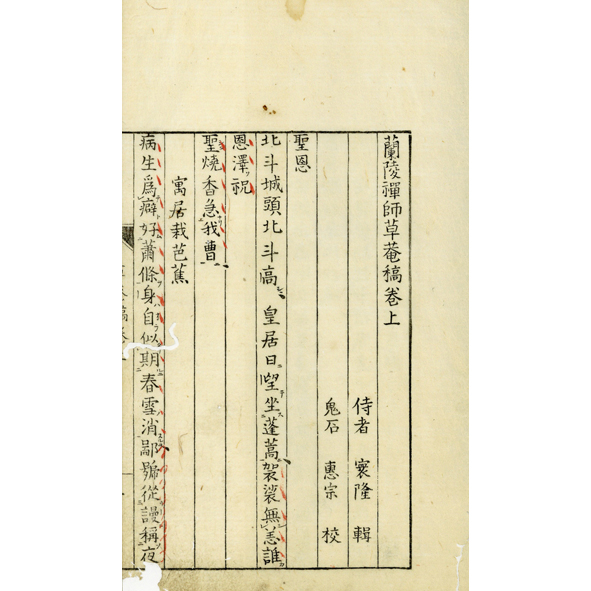 蘭陵禪師草菴稿卷上
侍者 寰隆 輯
鬼石 惠宗 校
聖恩
北斗城頭北斗高皇居日望坐蓬蒿袈裟無恙誰
恩澤祝
聖燒香急我曹
寓居栽芭蕉
病生為癖好蕭條身自似期春雪消鄙號從謾稱夜